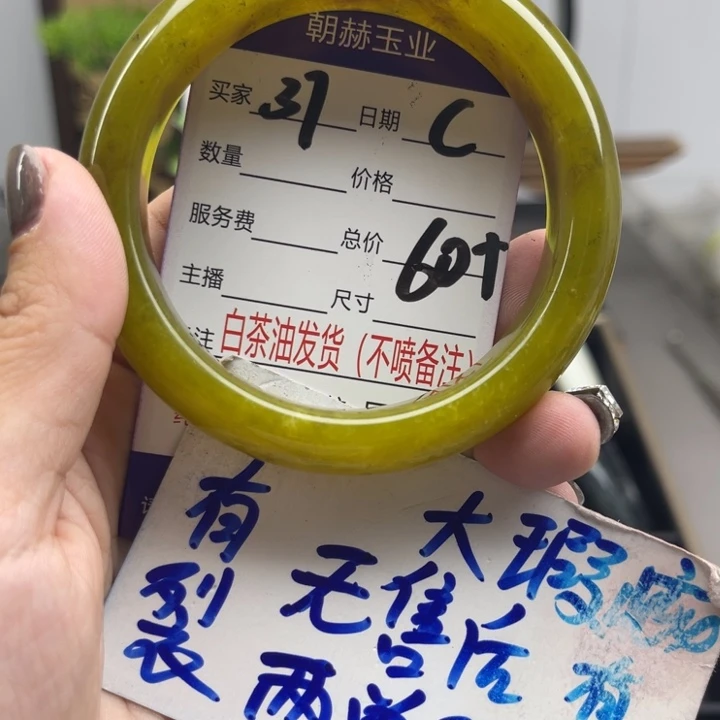 朝赫玉业
买家 31 日期 C
数量 价格
服务费 总价 60+
主播 尺寸
注 白茶油发货(不喷备注)
有 大瑕
裂 无售后
两 有